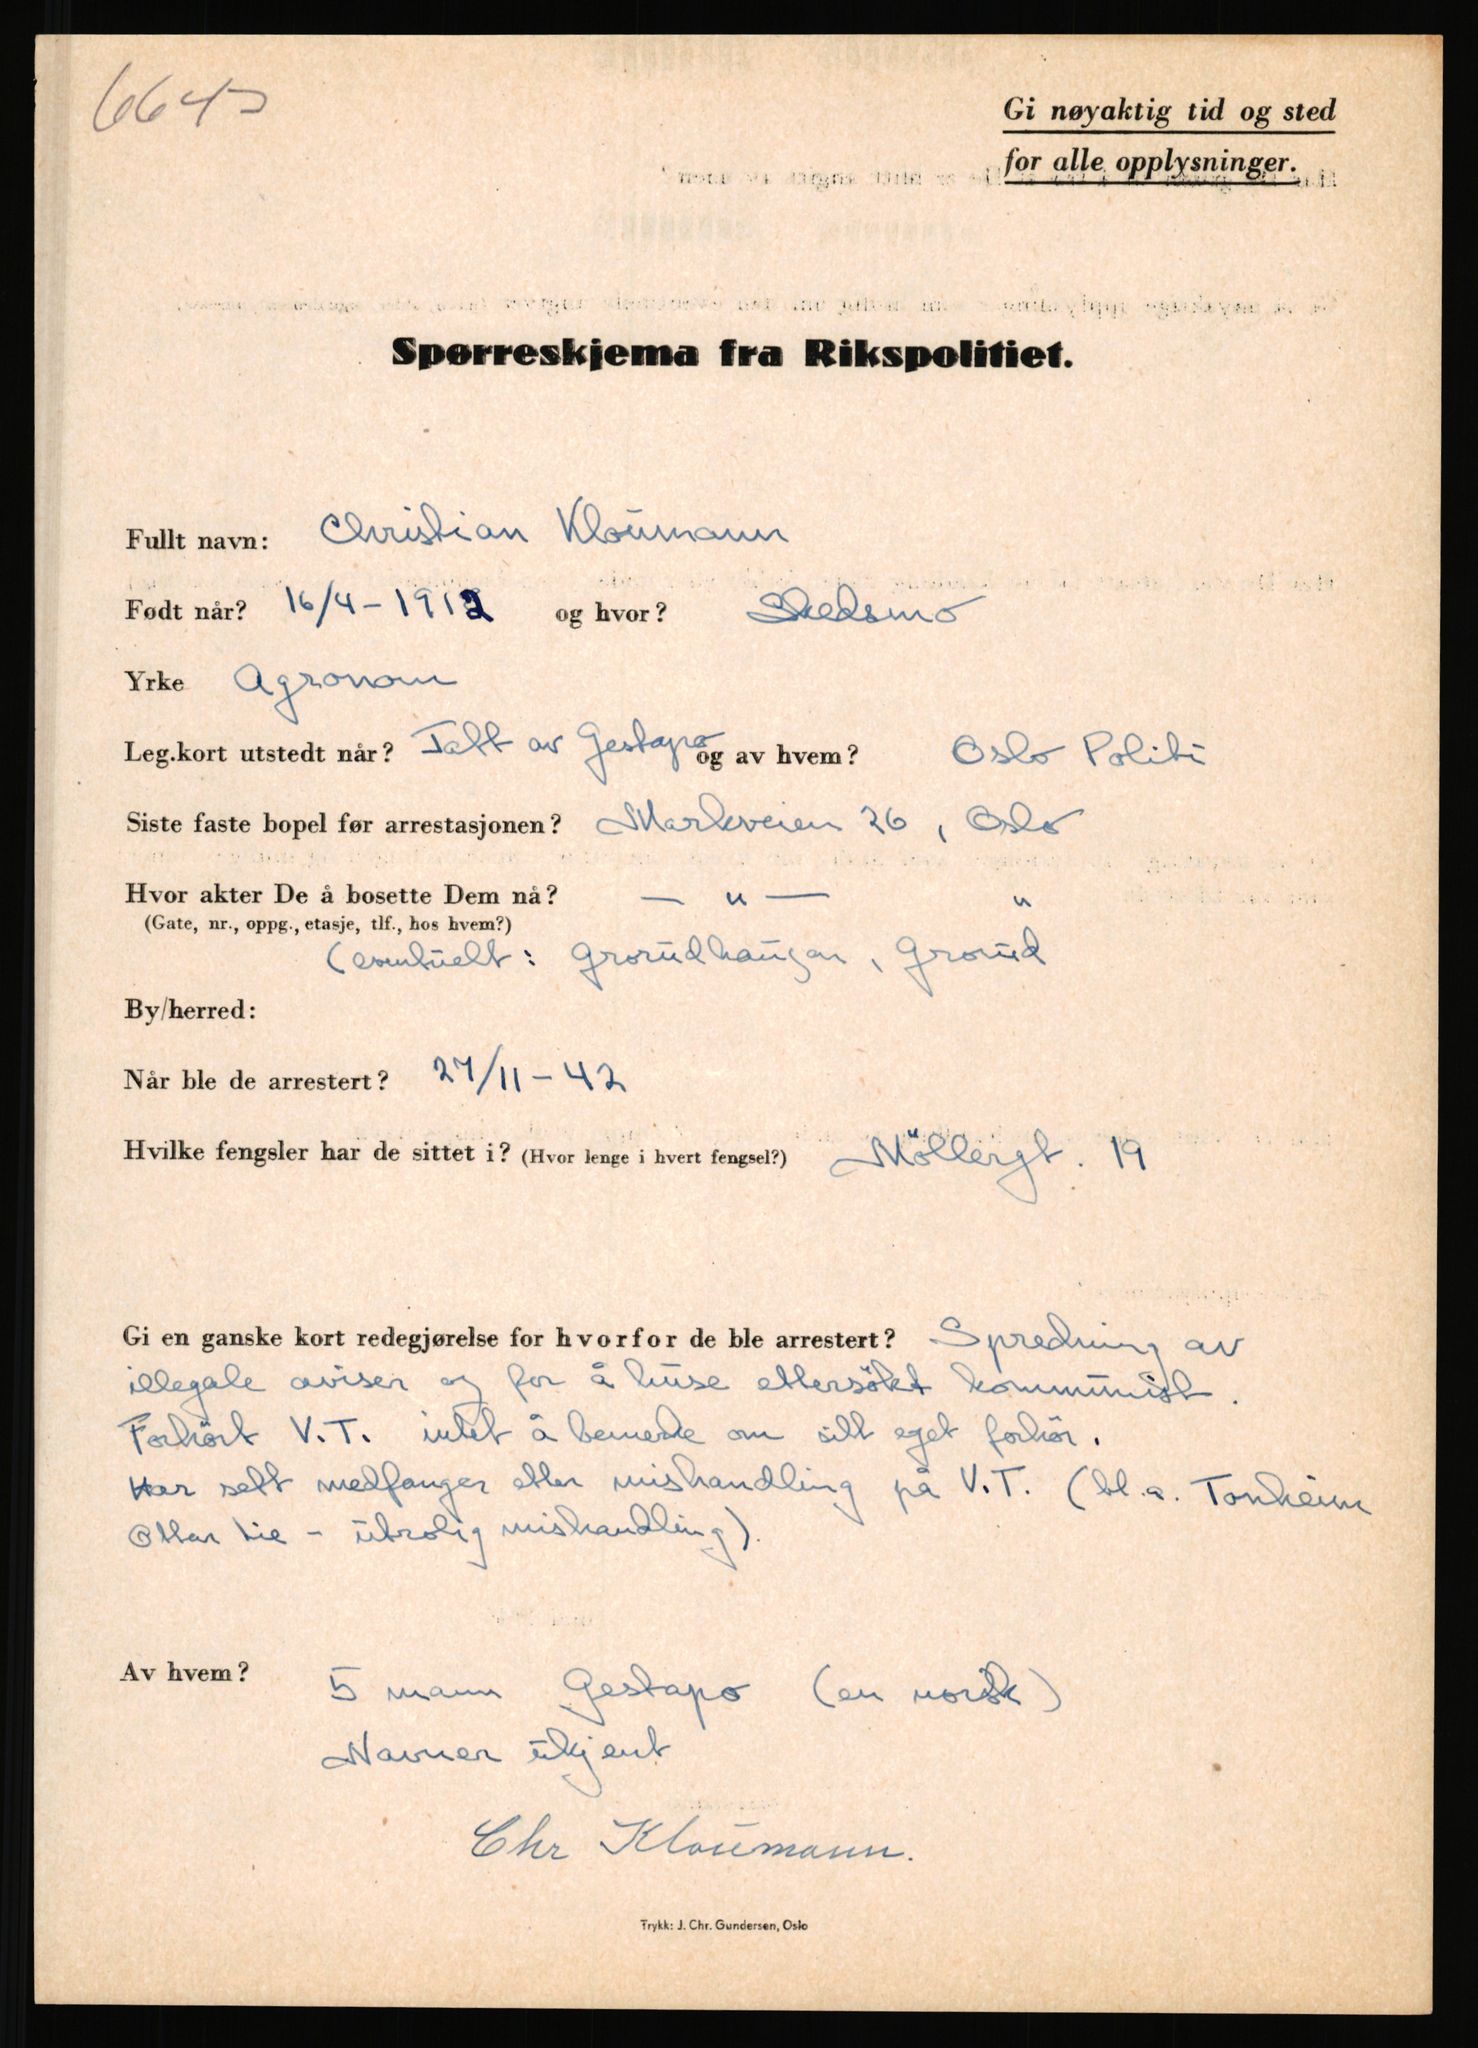 6645
Gi nøyaktig tid og sted
for alle opplysninger.
Spørreskjema fra Rikspolitiet.
Fullt navn: Christian Kloumann
Født når? 16/4-1912 og hvor? Skedsmo
Yrke Agronom
Leg.kort utstedt når? Tatt av Gestapo og av hvem? Oslo Politi
Siste faste bopel før arrestasjonen? Markveien 26, Oslo
Hvor akter De å bosette Dem nå? — " — "
(Gate, nr., oppg., etasje, tlf., hos hvem?)
(eventuelt: Grorudhaugen, Grorud
By/herred:
Når ble de arrestert? 27/11-42
Hvilke fengsler har de sittet i? (Hvor lenge i hvert fengsel?) Möllergt. 19
Gi en ganske kort redegjørelse for hvorfor de ble arrestert? Spredning av
illegale aviser og for å huse ettersökt kommunist.
Forhört V.T. intet å bemerke om sitt eget forhör.
Har sett medfanger etter mishandling på V.T. (bl.a. Tonheim
Ottar Lie - utrolig mishandling).
Av hvem? 5 mann Gestapo (en norsk)
Navner ukjent
Chr Kloumann.
Trykk: J. Chr. Gundersen, Oslo